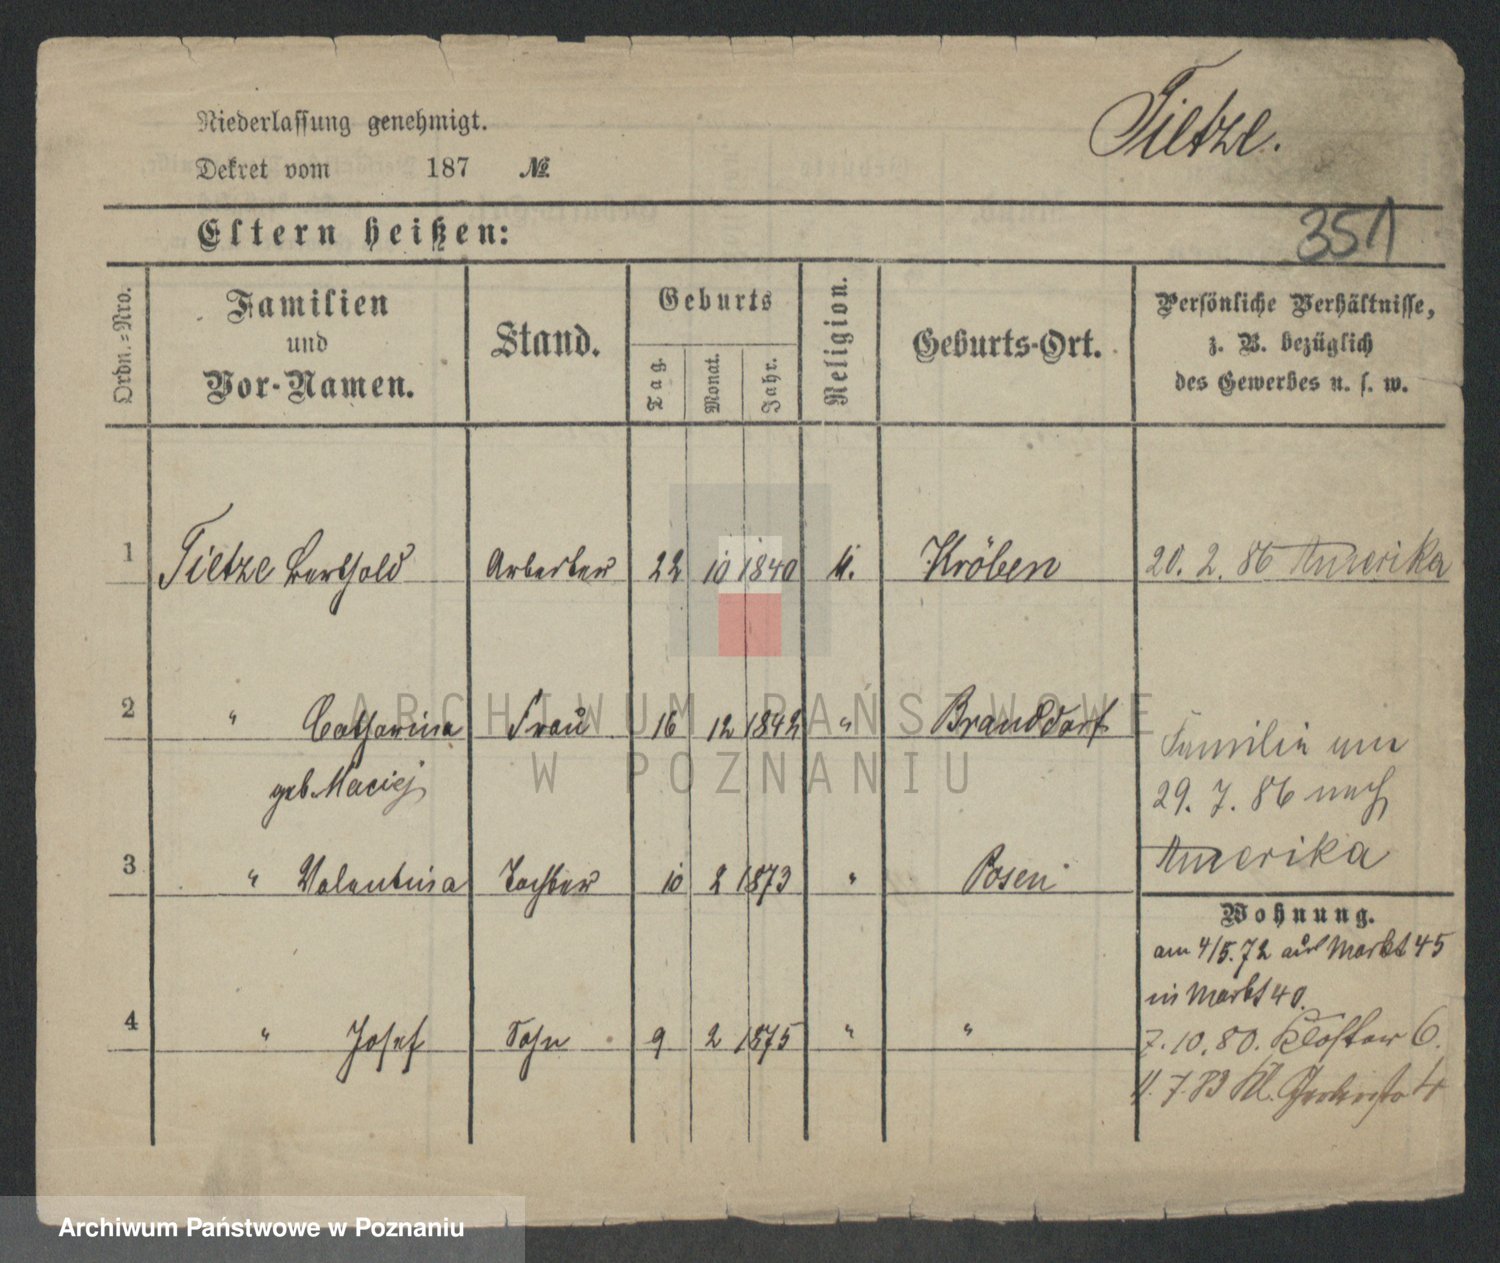 Tietze.
Niederlassung genehmigt.
Dekret vom 187 №
351
Eltern heißen:
Ordn.-Nro.
Familien
und
Vor-Namen.
Stand.
Geburts
Tag.
Monat.
Jahr.
Religion.
Geburts-Ort.
Persönliche Verhältnisse,
z. B. bezüglich
des Gewerbes u. s. w.
1 Tietze Berthold Arbeiter 22 10 1840 k. Kröben 20. 2. 86 Amerika
2 " Catharina Frau 16 12 1842 " Branddorf
geb. Maciej
Familie am
29. 7. 86 nach
Amerika
3 " Valentina Tochter 10 2 1873 " Posen
Wohnung.
am 4/5. 72 aus Markt 45
in Markt 40.
4 " Josef Sohn 9 2 1875 " "
7. 10. 80. Kloster 6.
4. 7. 83 Kl. 4
ARCHIWUM PAŃSTWOWE
W POZNANIU
Archiwum Państwowe w Poznaniu